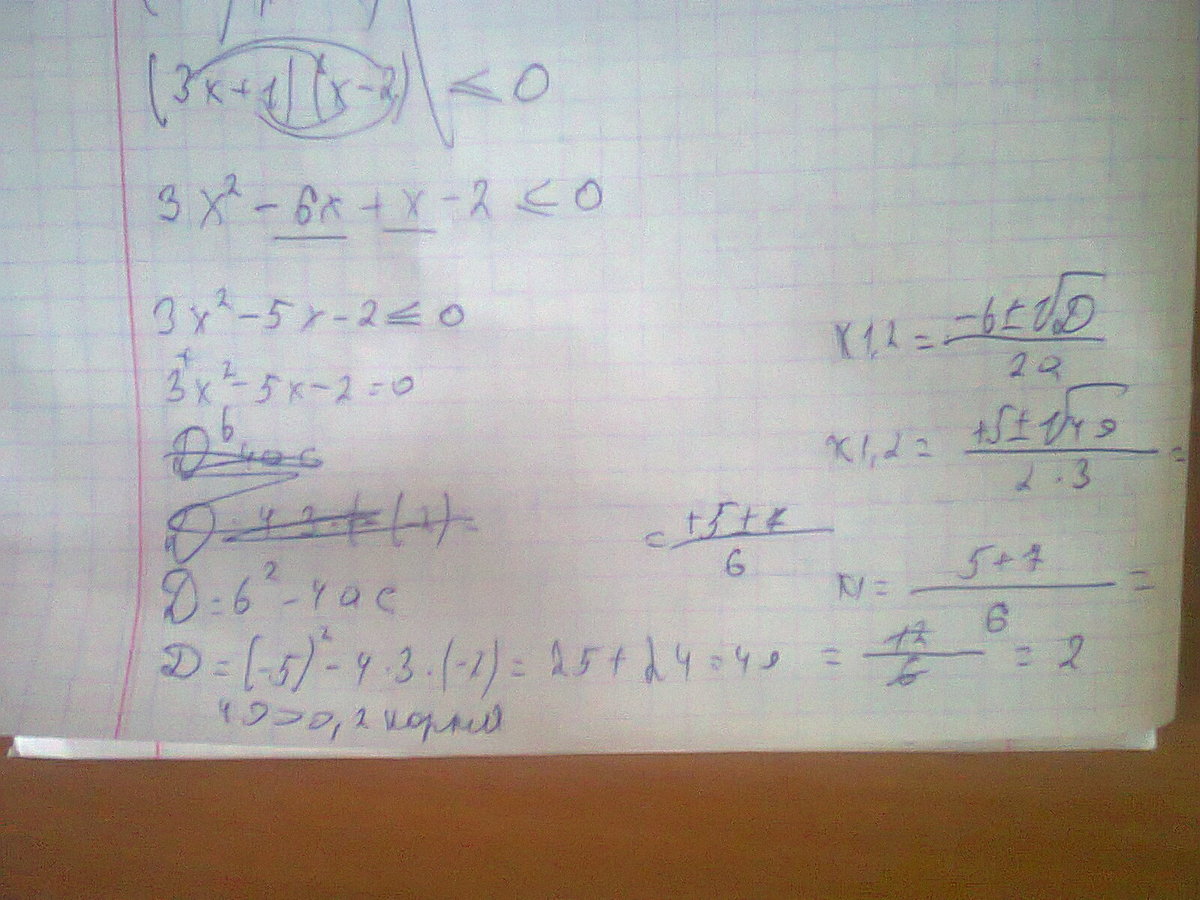 (3x+1)(x-2) ≤ 0
3x² - 6x + x - 2 ≤ 0
3x² - 5x - 2 ≤ 0
3x² - 5x - 2 = 0
D = b² - 4ac
D = (-5)² - 4·3·(-2) = 25 + 24 = 49
49 > 0, 2 корня
x1,2 = -b ± √D / 2a
x1,2 = +5 ± √49 / 2·3 =
= +5 ± 7 / 6
x1 = 5+7 / 6 =
= 12 / 6 = 2